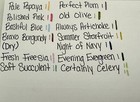 Pale Papaya
Perfect Plum
Polished Pink
Old Olive
Bashful Blue
Always Artichoke
Bravo Burgundy
Summer Starfruit
(Dry)
Night of Navy
Fresh Freesia
Evening Evergreen
Soft Succulent
Certainly Celery